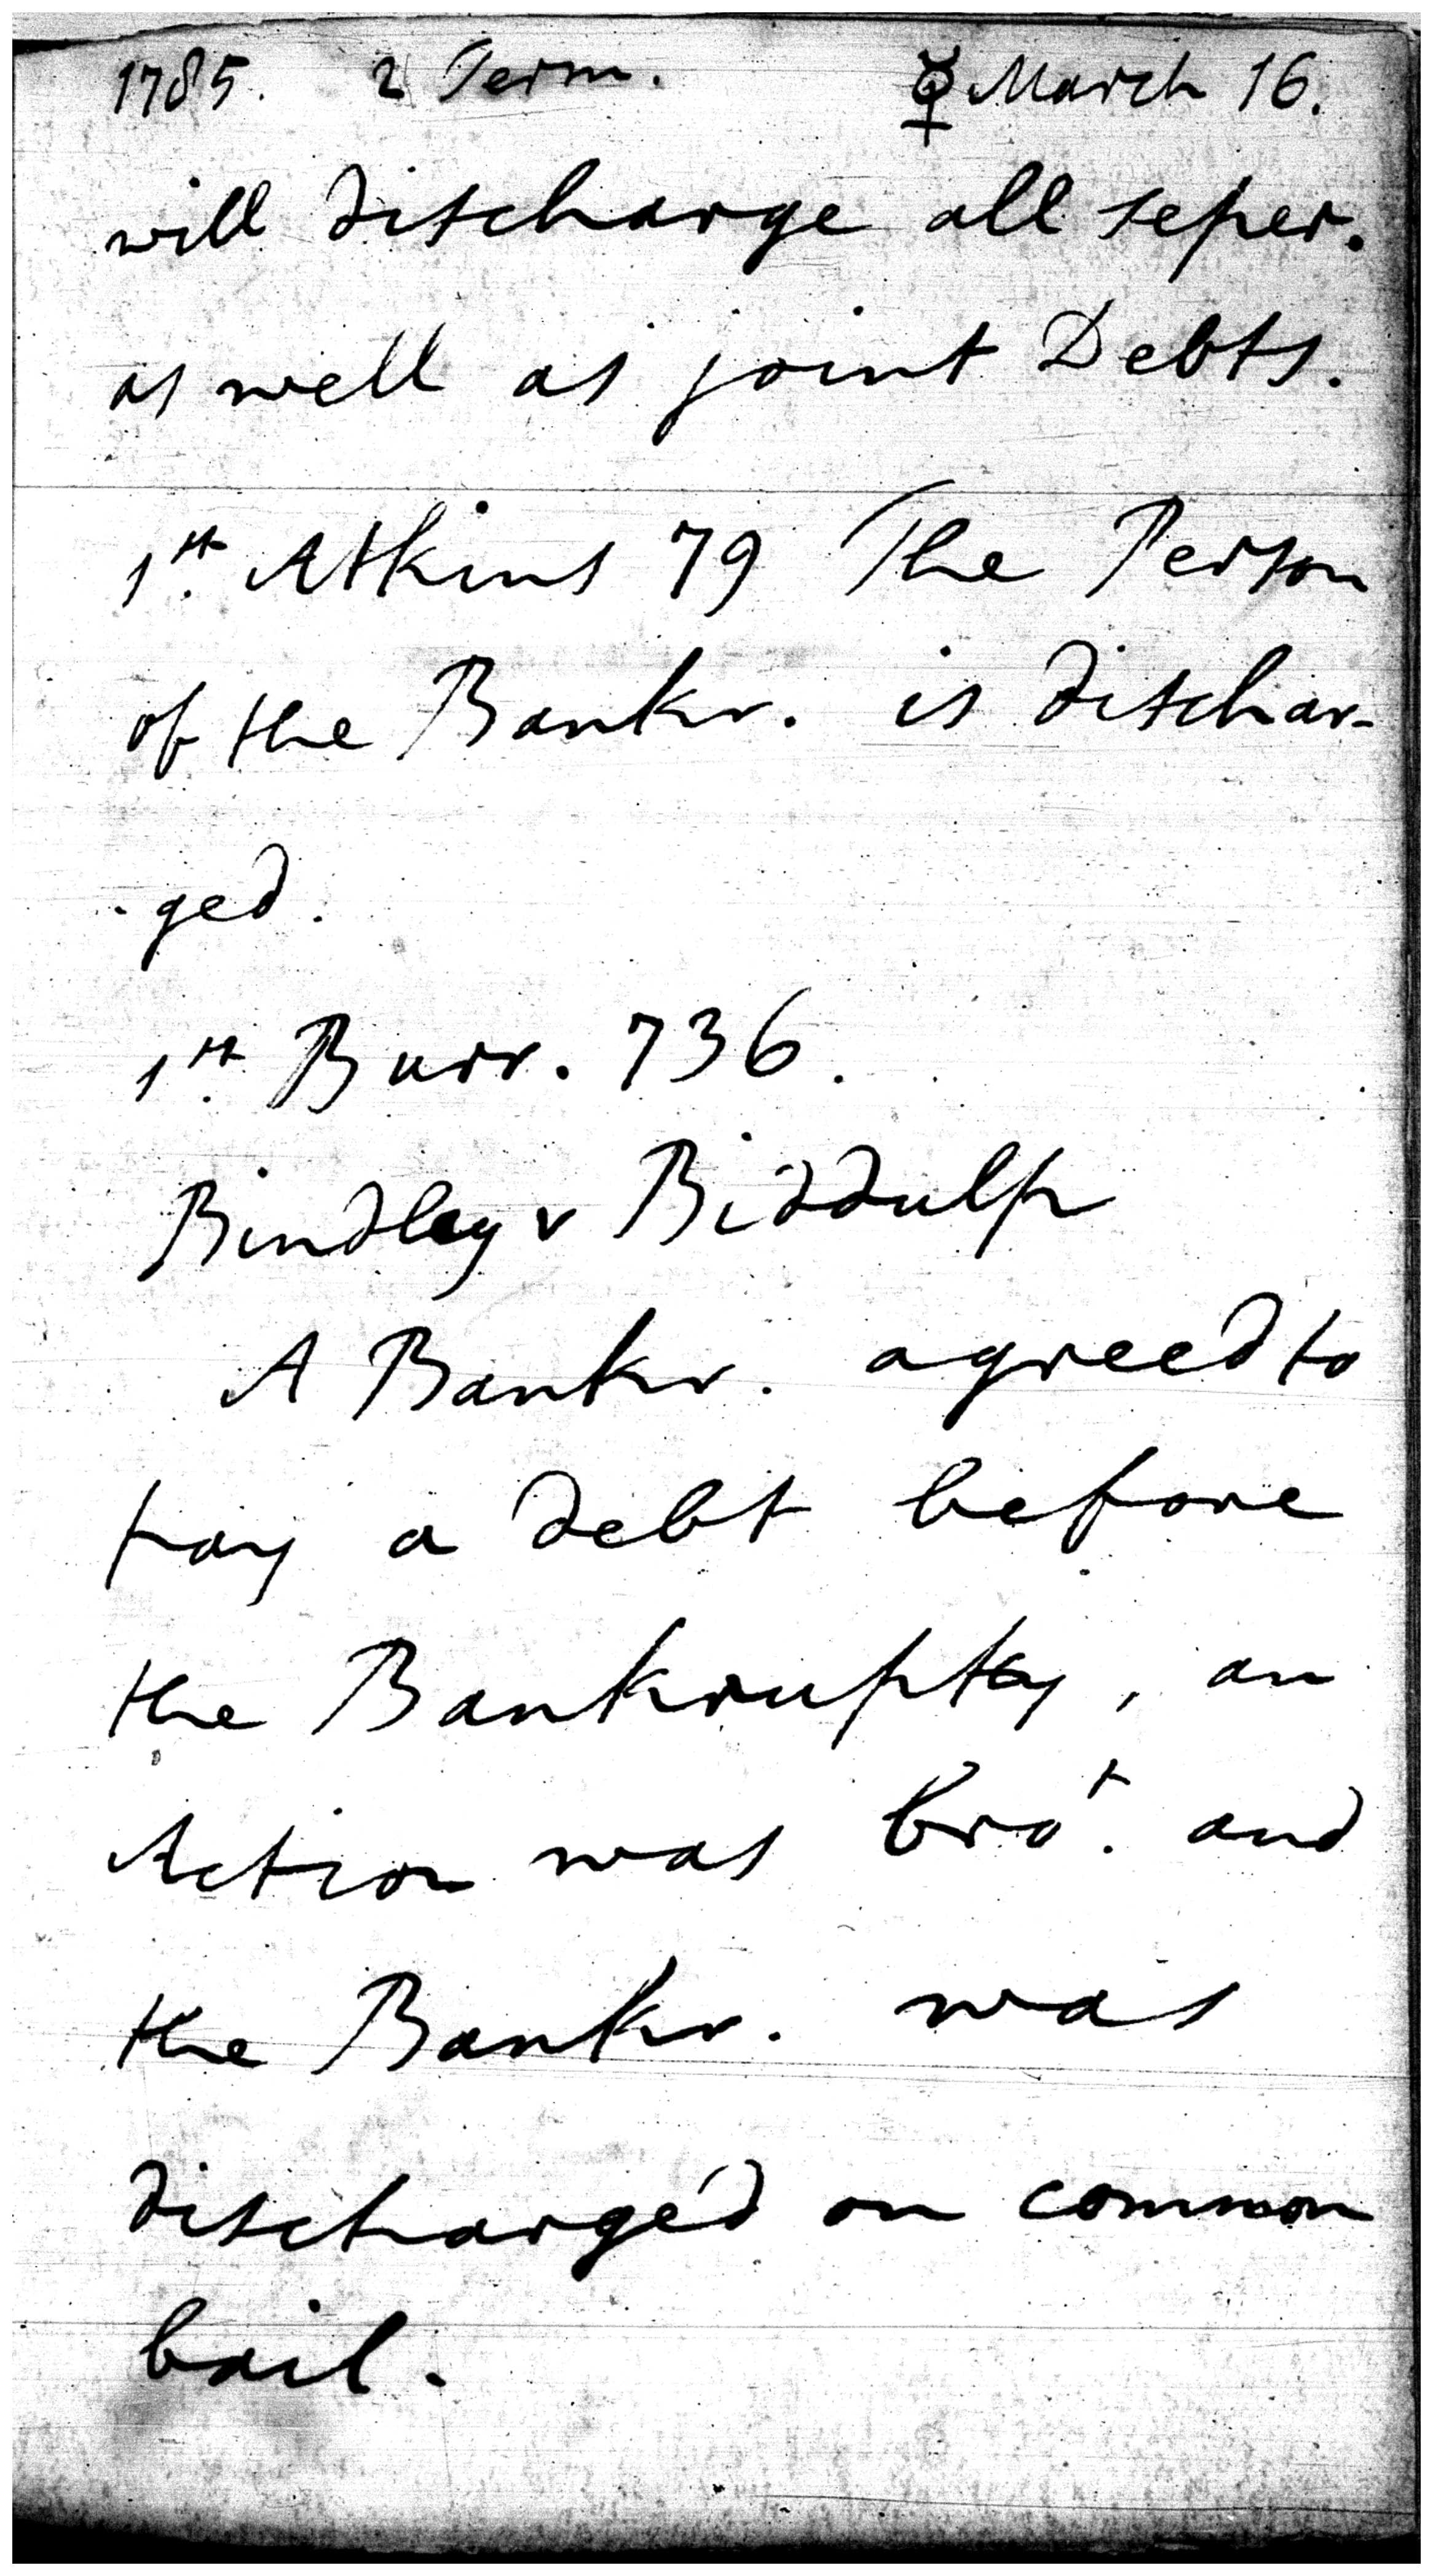 1785. 2 Term. ☿ March 16.
will discharge all seper.
as well as joint Debts.
1st. Atkins 79 The Person
of the Bankr. is dischar-
-ged.
1st. Burr. 736.
Bindley v Biddulph
A Bankr. agreed to
pay a debt before
the Bankruptcy, an
Action was bro't. and
the Bankr. was
discharge'd on common
bail.